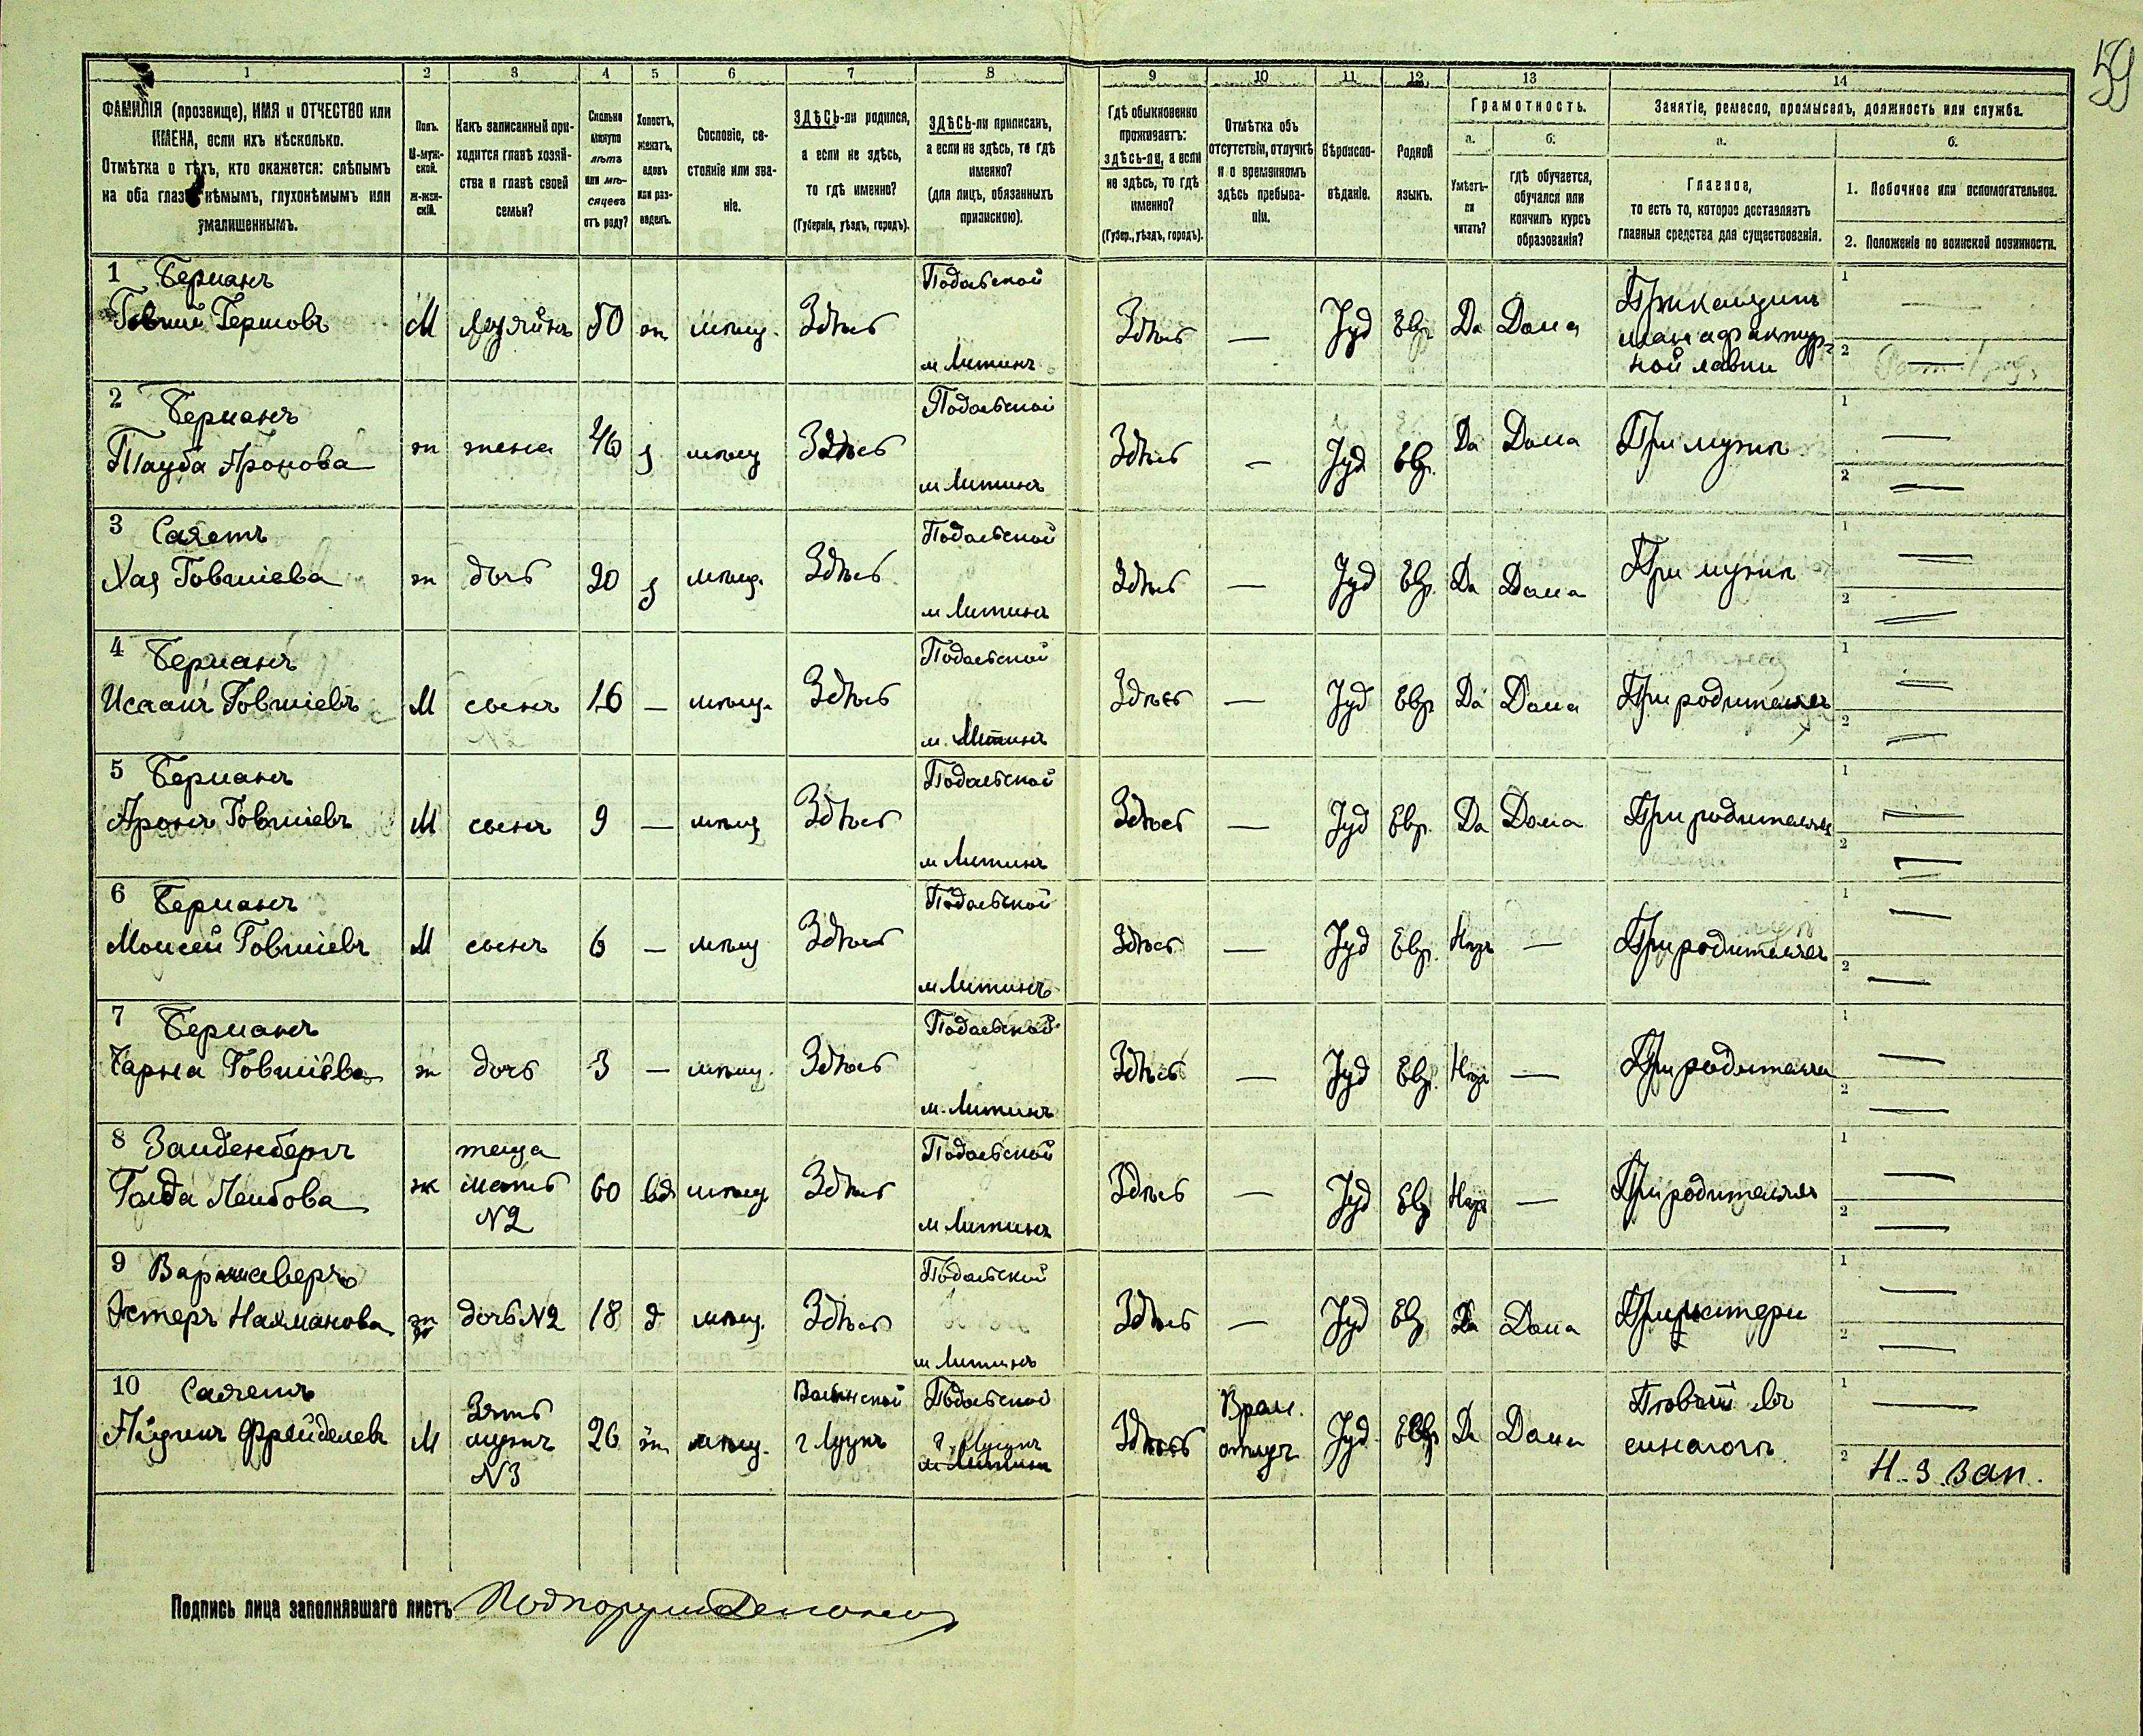 59
1 2 3 4 5 6 7 8 9 10 11 12 13 14
ФАМИЛІЯ (прозвище), ИМЯ и ОТЧЕСТВО или
ИМЕНА, если ихъ нѣсколько.
Отмѣтка о тѣхъ, кто окажется: слѣпымъ
на оба глаза, нѣмымъ, глухонѣмымъ или
умалишеннымъ.
Полъ.
М-муж-
ской.
Ж-жен-
скій.
Какъ записанный при-
ходится главѣ хозяй-
ства и главѣ своей
семьи?
Сколько
минуло
лѣтъ
или мѣ-
сяцевъ
отъ роду?
Холостъ,
женатъ,
вдовъ
или раз-
веденъ.
Сословіе, со-
стояніе или зва-
ніе.
ЗДѢСЬ-ли родился,
а если не здѣсь,
то гдѣ именно?
(Губернія, уѣздъ, городъ).
ЗДѢСЬ-ли приписанъ,
а если не здѣсь, то гдѣ
именно?
(для лицъ, обязанныхъ
припискою).
Гдѣ обыкновенно
проживаетъ:
здѣсь-ли, а если
не здѣсь, то гдѣ
именно?
(Губер., уѣздъ, городъ).
Отмѣтка объ
отсутствіи, отлучкѣ
и о временномъ
здѣсь пребыва-
ніи.
Вѣроиспо-
вѣданіе.
Родной
языкъ.
Грамотность.
а.
Умѣетъ-
ли
читать?
б.
гдѣ обучается,
обучался или
кончилъ курсъ
образованія?
Занятіе, ремесло, промыселъ, должность или служба.
а.
Главное,
то есть то, которое доставляетъ
главныя средства для существованія.
б.
1. Побочное или вспомогательное.
2. Положеніе по воинской повинности.
1 Берманъ
Говшій Гершовъ М хозяинъ 50 ж мѣщ. Здѣсь
Подольской
м Литинъ
Здѣсь — Іуд Евр Да Дома
Прикащикъ
мануфактур-
ной лавки
1 —
2 —
2 Берманъ
Тауба Аронова ж жена 46 з мѣщ Здѣсь
Подольской
м Литинъ
Здѣсь — Іуд Евр. Да Дома При мужѣ
1 —
2 —
3 Саляетъ
Хая Говшіева ж дочь 20 з мѣщ. Здѣсь
Подольской
м Литинъ
Здѣсь — Іуд Евр. Да Дома При мужѣ
1 —
2 —
4 Берманъ
Исаакъ Говшіевъ М сынъ 16 — мѣщ. Здѣсь
Подольской
м. Литинъ
Здѣсь — Іуд Евр Да Дома При родителяхъ
1 —
2 —
5 Берманъ
Аронъ Говшіевъ М сынъ 9 — мѣщ Здѣсь
Подольской
м Литинъ
Здѣсь — Іуд Евр. Да Дома При родителяхъ
1 —
2 —
6 Берманъ
Моисей Говшіевъ М сынъ 6 — мѣщ Здѣсь
Подольской
м Литинъ
Здѣсь — Іуд Евр. Нѣтъ — При родителяхъ
1 —
2 —
7 Берманъ
Чарна Говшіева ж дочь 3 — мѣщ. Здѣсь
Подольской
м. Литинъ
Здѣсь — Іуд Евр. Нѣтъ — При родителяхъ
1 —
2 —
8 Зайденбергъ
Голда Лейбова ж
теща
мать
№2
60 вд мѣщ Здѣсь
Подольской
м Литинъ
Здѣсь — Іуд Евр Нѣтъ — При родителяхъ
1 —
2 —
9 Варшаверъ
Эстеръ Нахманова ж дочь №2 18 д мѣщ. Здѣсь
Подольской
м Литинъ
Здѣсь — Іуд Евр Да Дома При матери
1 —
2 —
10 Саляетъ
Фройделевъ М
Зять
мужъ
№3
26 ж мѣщ.
Волынской
г Луцкъ
Подольской
г. Луцкъ
м Литинъ
Здѣсь
Врем.
отлуч
Іуд Евр Да Дома
Пѣвчій въ
синагогѣ
1 —
2 Н. З. Зап.
Подпись лица заполнявшаго листъ